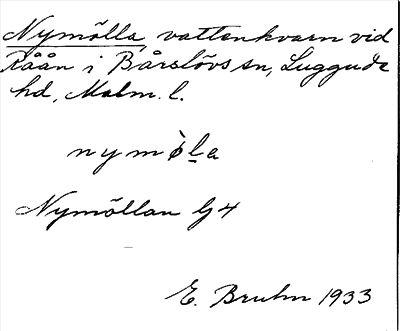 Nymölla, vattenkvarn vid
Råån i Bårslövs sn, Luggude
hd, Malm. l.
nymø̀l̲a
Nymöllan G4
E. Bruhn 1933